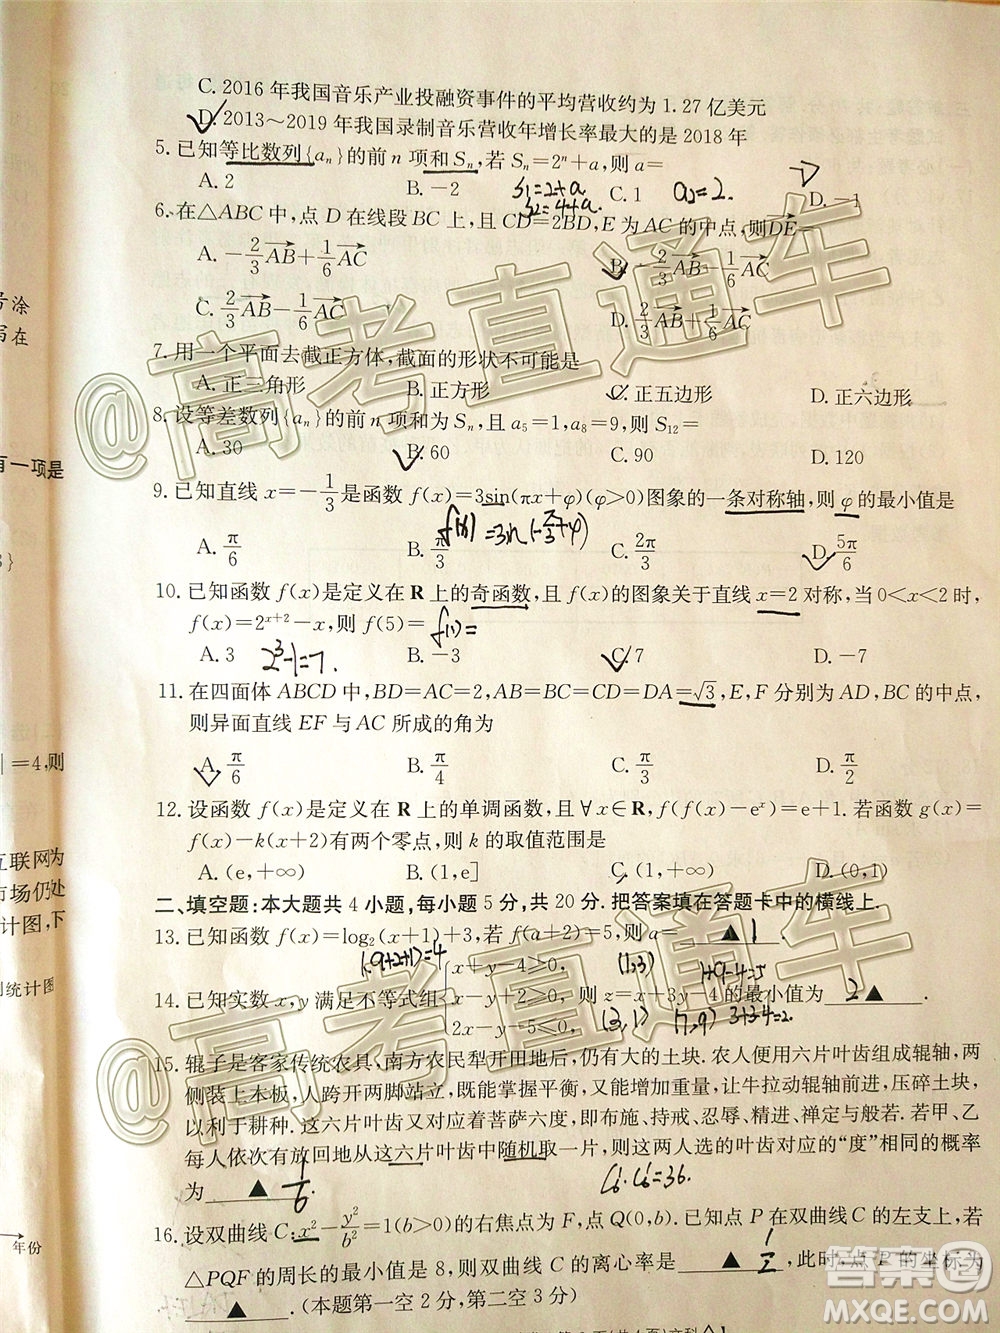 C. 2016 年我国音乐产业投融资事件的平均营收约为 1. 27 亿美元
D. 2013～2019 年我国录制音乐营收年增长率最大的是 2018 年
5. 已知等比数列{aₙ}的前 n 项和 Sₙ,若 Sₙ=2ⁿ+a,则 a=
A. 2 B. -2 C. 1 D. -1
S₁=2+a a₂=2.
S₂=4+a.
6. 在△ABC 中,点 D 在线段 BC 上,且 CD=2BD,E 为 AC 的中点,则DE=
A. -2/3 AB+1/6 AC B. -2/3 AB-1/6 AC
C. 2/3 AB-1/6 AC D. 2/3 AB+1/6 AC
7. 用一个平面去截正方体,截面的形状不可能是
A. 正三角形 B. 正方形 C. 正五边形 D. 正六边形
8. 设等差数列{aₙ}的前 n 项和为 Sₙ,且 a₅=1,a₈=9,则 S₁₂=
A. 30 B. 60 C. 90 D. 120
9. 已知直线 x=-1/3是函数 f(x)=3sin(πx+φ)(φ>0)图象的一条对称轴,则 φ的最小值是
f(x)=3sin(-π/3+φ)
A. π/6 B. π/3 C. 2π/3 D. 5π/6
10. 已知函数 f(x)是定义在 R 上的奇函数,且 f(x)的图象关于直线 x=2 对称,当 0<x<2 时,
f(x)=2ˣ⁺²-x,则 f(5)=
f(1)=
A. 3 B. -3 C. 7 D. -7
2³-1=7.
11. 在四面体 ABCD 中,BD=AC=2,AB=BC=CD=DA=√3,E,F 分别为 AD,BC 的中点,
则异面直线 EF 与 AC 所成的角为
A. π/6 B. π/4 C. π/3 D. π/2
12. 设函数 f(x)是定义在 R 上的单调函数,且∀x∈R,f(f(x)-eˣ)=e+1. 若函数 g(x)=
f(x)-k(x+2)有两个零点,则 k 的取值范围是
A. (e,+∞) B. (1,e] C. (1,+∞) D. (0,1)
二、填空题:本大题共 4 小题,每小题 5 分,共 20 分. 把答案填在答题卡中的横线上.
13. 已知函数 f(x)=log₂(x+1)+3,若 f(a+2)=5,则 a= ▲ 1 .
(1,3) 1+9-4=5
14. 已知实数 x,y 满足不等式组{x+y-4≥0, 则 z=x+3y-4 的最小值为 2 ▲ .
2x-y-5≤0,
(3,1) (7,9) 3+3-4=2.
15. 辊子是客家传统农具,南方农民犁开田地后,仍有大的土块. 农人便用六片叶齿组成辊轴,两
侧装上木板,人跨开两脚站立,既能掌握平衡,又能增加重量,让牛拉动辊轴前进,压碎土块,
以利于耕种. 这六片叶齿又对应着菩萨六度,即布施、持戒、忍辱、精进、禅定与般若. 若甲、乙
每人依次有放回地从这六片叶齿中随机取一片,则这两人选的叶齿对应的“度”相同的概率
为 ▲ 1/6 .
C₆¹C₆¹=36.
16. 设双曲线 C:x²-y²/b²=1(b>0)的右焦点为 F,点 Q(0,b). 已知点 P 在双曲线 C 的左支上,若
△PQF 的周长的最小值是 8,则双曲线 C 的离心率是 ▲ ,此时,点 P 的坐标为
▲ . (本题第一空 2 分,第二空 3 分)
号涂
写在
有一项是
3}
|=4,则
互联网为
市场仍处
计图,下
统计图
年份
@高考直通车
@高考直通车
答案圈
MXQE.COM